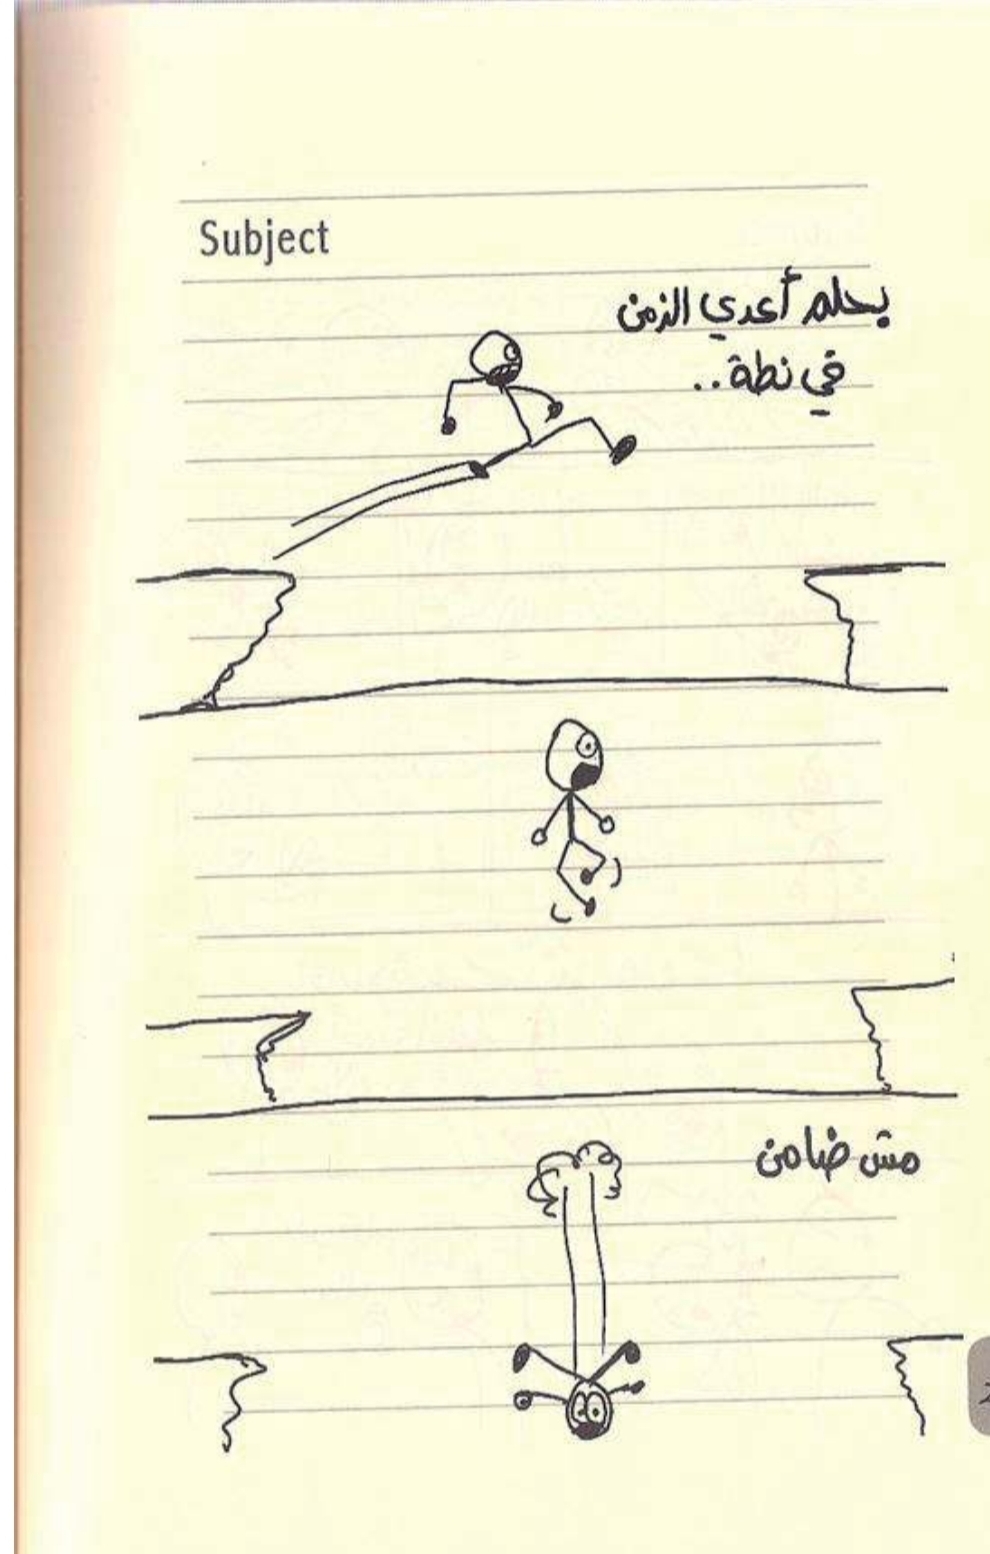 Subject
بحلم أعدي الزمن
في نطة..
مش ضامن